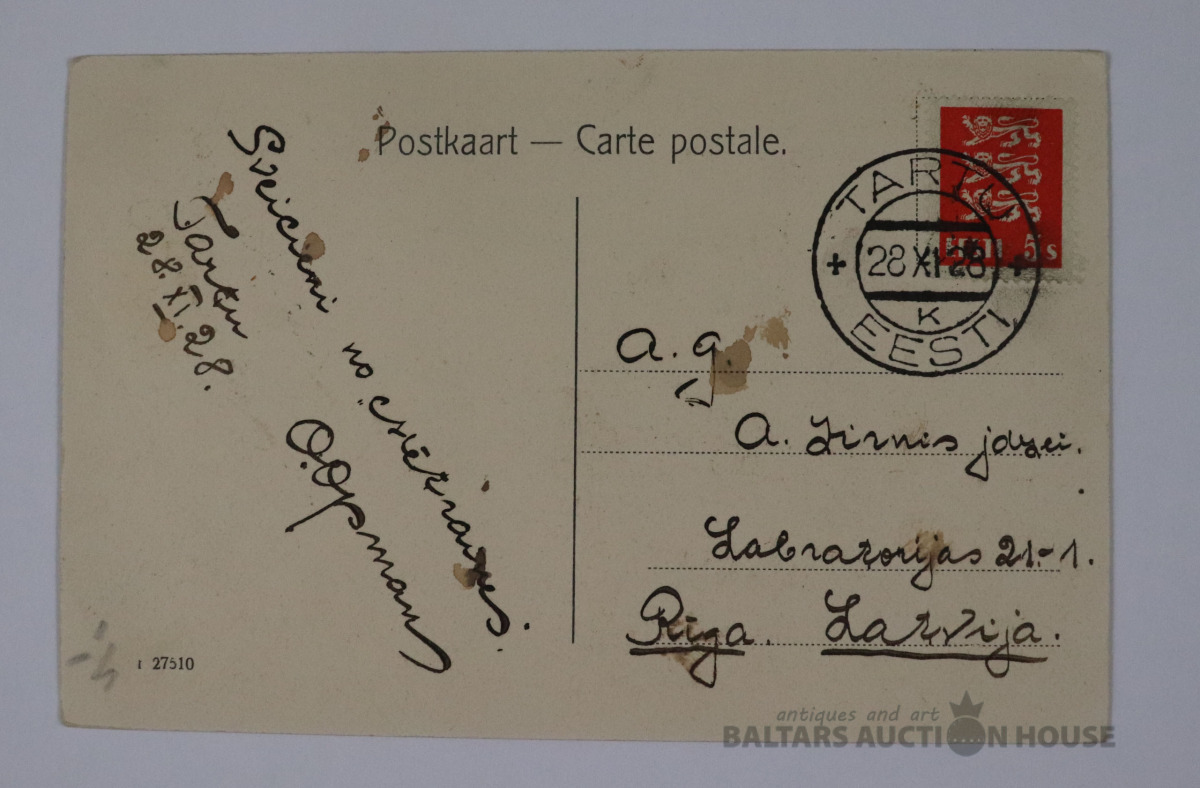 Postkaart — Carte postale.
Sveicieni no
Tartu
28.XI.28.
O. Opman
TARTU
28 XI 28
K
EESTI
EESTI 5 s
A. g.
A. Zirnis jdzei.
Labratorijas 21.-1.
Rīga. Latvija.
27510
antiques and art
BALTARS AUCTION HOUSE